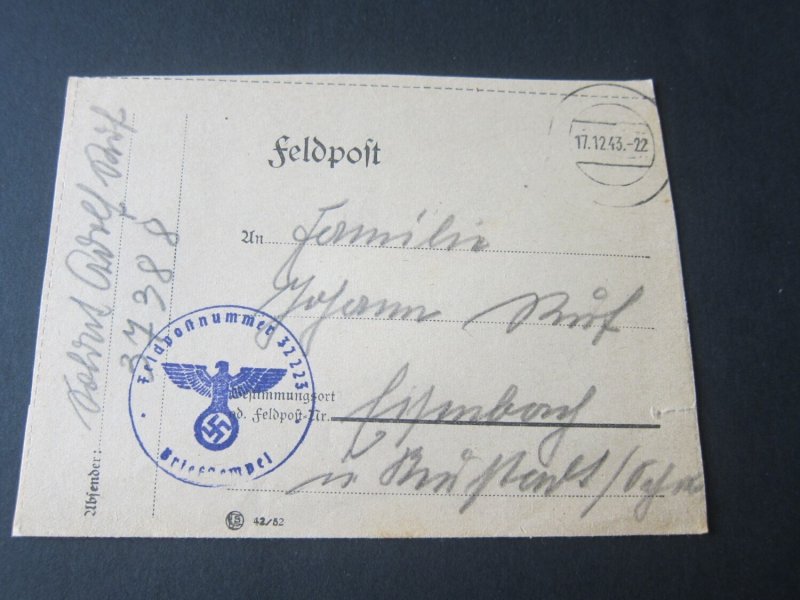 Feldpost
17.12.43.-22
An Familie
Johann Ruf
Bestimmungsort
od. Feldpost-Nr. Eisenbach
n Neustadt/Schw
Absender: Soldat Adolf Ruf
37388
Feldpostnummer 32223
Briefstempel
42/52